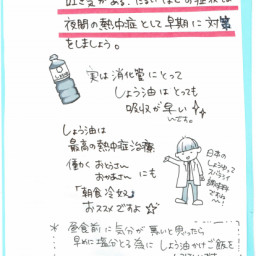 吐き気がある、だるいなどの症状は
夜間の熱中症として早期に対策
をしましょう。
実は消化管にとって
しょう油はとても
吸収が早い
〜です。
しょう油は
最高の熱中症治療
働くおとうさん
おかあさん にも
「朝食冷奴」
おススメですよ
日本の
しょうゆって
スバラシイ
調味料
ですね〜
＊昼食前に気分が悪いと思ったら
早めに塩分とる為にしょう油かけご飯を